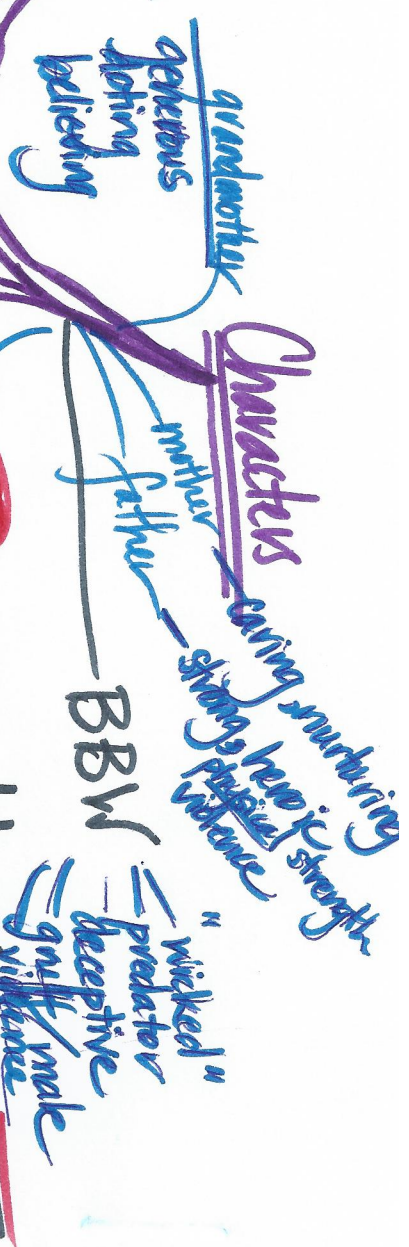 Characters
grandmother
generous
doting
believing
mother
caring, nurturing
father
strong, heroic
physical strength
violence
BBW
"wicked"
predator
deceptive
gruff/male
violence